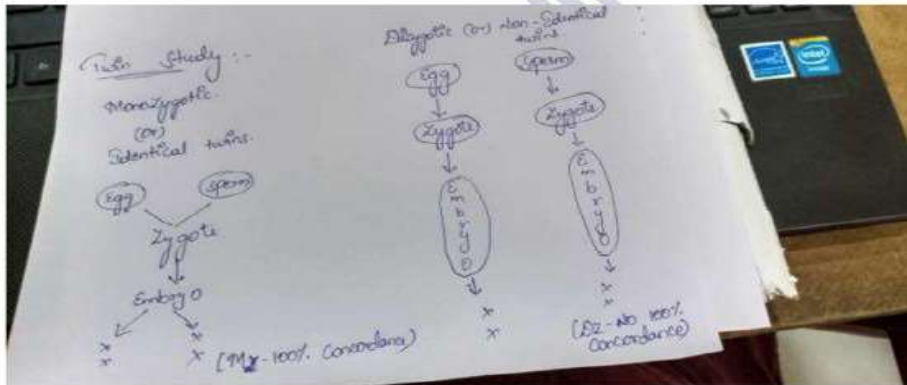 Twin Study :-
Monozygotic
(or)
Identical twins.
Egg
Sperm
Zygote
Embryo
x x
x x
[Mz - 100% Concordance)
Dizygotic (or) Non-Identical
twins
Egg
Sperm
Zygote
Zygote
Embryo
Embryo
x
x
x
x
[DZ - No 100%
Concordance)
intel